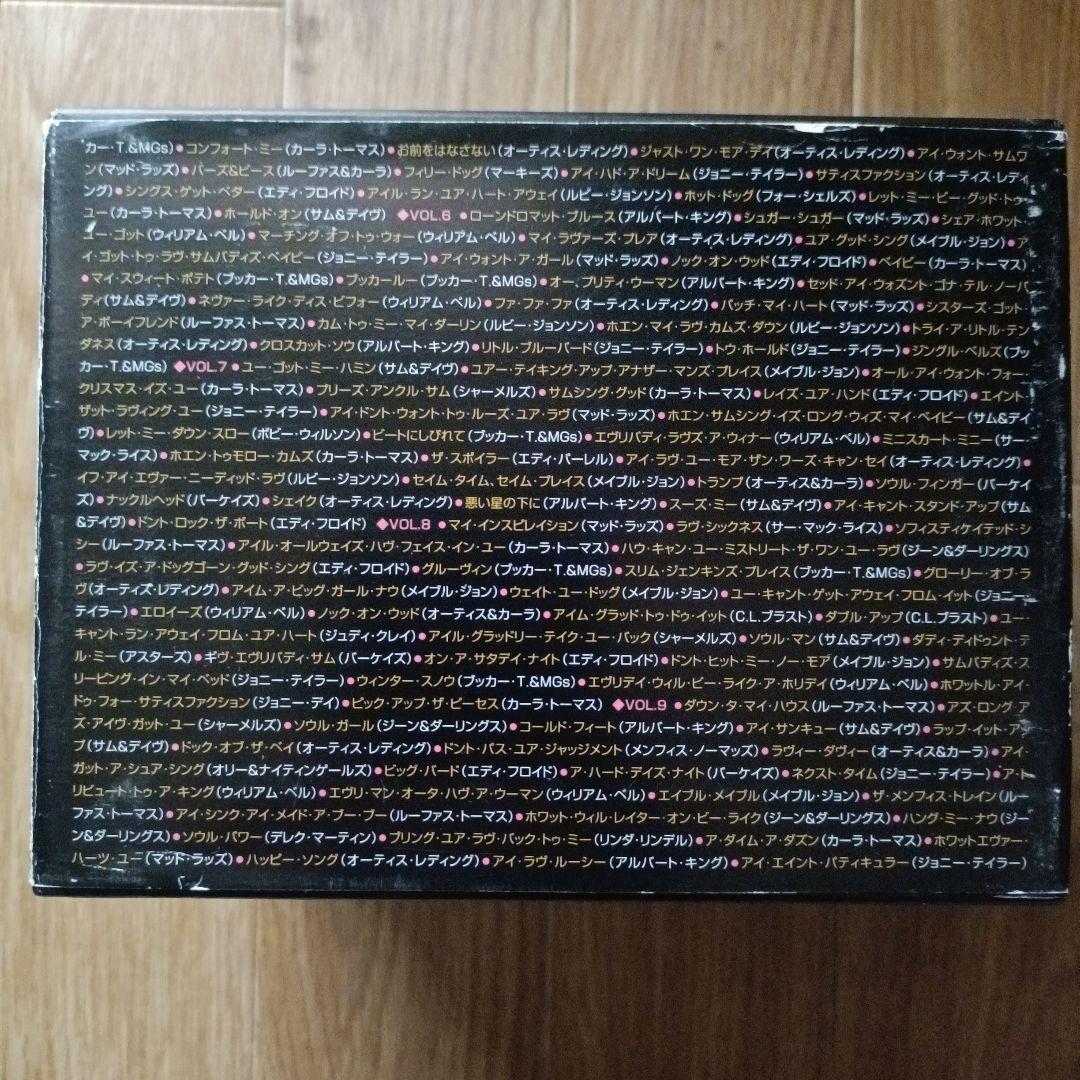 カー・T.&MGs)●コンフォート・ミー(カーラ・トーマス)●お前をはなさない(オーティス・レディング)●ジャスト・ワン・モア・デイ(オーティス・レディング)●アイ・ウォント・サムワ
ン(マッド・ラッズ)●バーズ&ビース(ルーファス&カーラ)●フィリー・ドッグ(マーキーズ)●アイ・ハド・ア・ドリーム(ジョニー・テイラー)●サティスファクション(オーティス・レディ
ング)●シングス・ゲット・ベター(エディ・フロイド)●アイル・ラン・ユア・ハート・アウェイ(ルビー・ジョンソン)●ホット・ドッグ(フォー・シェルズ)●レット・ミー・ビー・グッド・トゥ・
ユー(カーラ・トーマス)●ホールド・オン(サム&デイヴ) ◆VOL.6 ●ローンドロマット・ブルース(アルバート・キング)●シュガー・シュガー(マッド・ラッズ)●シェア・ホワット・
ユー・ゴット(ウィリアム・ベル)●マーチング・オフ・トゥ・ウォー(ウィリアム・ベル)●マイ・ラヴァーズ・プレア(オーティス・レディング)●ユア・グッド・シング(メイブル・ジョン)●ア
イ・ゴット・トゥ・ラヴ・サムバディズ・ベイビー(ジョニー・テイラー)●アイ・ウォント・ア・ガール(マッド・ラッズ)●ノック・オン・ウッド(エディ・フロイド)●ベイビー(カーラ・トーマス)
●マイ・スウィート・ポテト(ブッカー・T.&MGs)●ブッカールー(ブッカー・T.&MGs)●オー、プリティ・ウーマン(アルバート・キング)●セッド・アイ・ウォズント・ゴナ・テル・ノーバ
ディ(サム&デイヴ)●ネヴァー・ライク・ディス・ビフォー(ウィリアム・ベル)●ファ・ファ・ファ(オーティス・レディング)●パッチ・マイ・ハート(マッド・ラッズ)●シスターズ・ゴット・
ア・ボーイフレンド(ルーファス・トーマス)●カム・トゥ・ミー・マイ・ダーリン(ルビー・ジョンソン)●ホエン・マイ・ラヴ・カムズ・ダウン(ルビー・ジョンソン)●トライ・ア・リトル・テン
ダネス(オーティス・レディング)●クロスカット・ソウ(アルバート・キング)●リトル・ブルーバード(ジョニー・テイラー)●トウ・ホールド(ジョニー・テイラー)●ジングル・ベルズ(ブッ
カー・T.&MGs) ◆VOL.7 ●ユー・ゴット・ミー・ハミン(サム&デイヴ)●ユアー・テイキング・アップ・アナザー・マンズ・プレイス(メイブル・ジョン)●オール・アイ・ウォント・フォー・
クリスマス・イズ・ユー(カーラ・トーマス)●プリーズ・アンクル・サム(シャーメルズ)●サムシング・グッド(カーラ・トーマス)●レイズ・ユア・ハンド(エディ・フロイド)●エイント・
ザット・ラヴィング・ユー(ジョニー・テイラー)●アイ・ドント・ウォント・トゥ・ルーズ・ユア・ラヴ(マッド・ラッズ)●ホエン・サムシング・イズ・ロング・ウィズ・マイ・ベイビー(サム&デイ
ヴ)●レット・ミー・ダウン・スロー(ボビー・ウィルソン)●ビートにしびれて(ブッカー・T.&MGs)●エヴリバディ・ラヴズ・ア・ウィナー(ウィリアム・ベル)●ミニスカート・ミニー(サー・
マック・ライス)●ホエン・トゥモロー・カムズ(カーラ・トーマス)●ザ・スポイラー(エディ・パーレル)●アイ・ラヴ・ユー・モア・ザン・ワーズ・キャン・セイ(オーティス・レディング)●
イフ・アイ・エヴァー・ニーディッド・ラヴ(ルビー・ジョンソン)●セイム・タイム、セイム・プレイス(メイブル・ジョン)●トランプ(オーティス&カーラ)●ソウル・フィンガー(バーケイ
ズ)●ナックルヘッド(バーケイズ)●シェイク(オーティス・レディング)●悪い星の下に(アルバート・キング)●スーズ・ミー(サム&デイヴ)●アイ・キャント・スタンド・アップ(サム
&デイヴ)●ドント・ロック・ザ・ボート(エディ・フロイド) ◆VOL.8 ●マイ・インスピレイション(マッド・ラッズ)●ラヴ・シックネス(サー・マック・ライス)●ソフィスティケイテッド・シ
シー(ルーファス・トーマス)●アイル・オールウェイズ・ハヴ・フェイス・イン・ユー(カーラ・トーマス)●ハウ・キャン・ユー・ミストリート・ザ・ワン・ユー・ラヴ(ジーン&ダーリングス)
●ラヴ・イズ・ア・ドッグゴーン・グッド・シング(エディ・フロイド)●グルーヴィン(ブッカー・T.&MGs)●スリム・ジェンキンズ・プレイス(ブッカー・T.&MGs)●グローリー・オブ・ラ
ヴ(オーティス・レディング)●アイム・ア・ビッグ・ガール・ナウ(メイブル・ジョン)●ウェイト・ユー・ドッグ(メイブル・ジョン)●ユー・キャント・ゲット・アウェイ・フロム・イット(ジョニー・
テイラー)●エロイーズ(ウィリアム・ベル)●ノック・オン・ウッド(オーティス&カーラ)●アイム・グラッド・トゥ・ドゥ・イット(C.L.ブラスト)●ダブル・アップ(C.L.ブラスト)●ユー・
キャント・ラン・アウェイ・フロム・ユア・ハート(ジュディ・クレイ)●アイル・グラッドリー・テイク・ユー・バック(シャーメルズ)●ソウル・マン(サム&デイヴ)●ダディ・ディドゥント・テ
ル・ミー(アスターズ)●ギヴ・エヴリバディ・サム(バーケイズ)●オン・ア・サタデイ・ナイト(エディ・フロイド)●ドント・ヒット・ミー・ノー・モア(メイブル・ジョン)●サムバディズ・ス
リーピング・イン・マイ・ベッド(ジョニー・テイラー)●ウィンター・スノウ(ブッカー・T.&MGs)●エヴリデイ・ウィル・ビー・ライク・ア・ホリデイ(ウィリアム・ベル)●ホワットル・アイ・
ドゥ・フォー・サティスファクション(ジョニー・デイ)●ピック・アップ・ザ・ピーセス(カーラ・トーマス) ◆VOL.9 ●ダウン・タ・マイ・ハウス(ルーファス・トーマス)●アズ・ロング・ア
ズ・アイヴ・ガット・ユー(シャーメルズ)●ソウル・ガール(ジーン&ダーリングス)●コールド・フィート(アルバート・キング)●アイ・サンキュー(サム&デイヴ)●ラップ・イット・アッ
プ(サム&デイヴ)●ドック・オブ・ザ・ベイ(オーティス・レディング)●ドント・パス・ユア・ジャッジメント(メンフィス・ノーマッズ)●ラヴィー・ダヴィー(オーティス&カーラ)●アイ・
ガット・ア・シュア・シング(オリー&ナイティンゲールズ)●ビッグ・バード(エディ・フロイド)●ア・ハード・デイズ・ナイト(バーケイズ)●ネクスト・タイム(ジョニー・テイラー)●ア・ト
リビュート・トゥ・ア・キング(ウィリアム・ベル)●エヴリ・マン・オータ・ハヴ・ア・ウーマン(ウィリアム・ベル)●エイブル・メイブル(メイブル・ジョン)●ザ・メンフィス・トレイン(ルー
ファス・トーマス)●アイ・シンク・アイ・メイド・ア・ブー・ブー(ルーファス・トーマス)●ホワット・ウィル・レイター・オン・ビー・ライク(ジーン&ダーリングス)●ハング・ミー・ナウ(ジー
ン&ダーリングス)●ソウル・パワー(デレク・マーティン)●ブリング・ユア・ラヴ・バック・トゥ・ミー(リンダ・リンデル)●ア・ダイム・ア・ダズン(カーラ・トーマス)●ホワットエヴァー・
ハーツ・ユー(マッド・ラッズ)●ハッピー・ソング(オーティス・レディング)●アイ・ラヴ・ルーシー(アルバート・キング)●アイ・エイント・パティキュラー(ジョニー・テイラー)